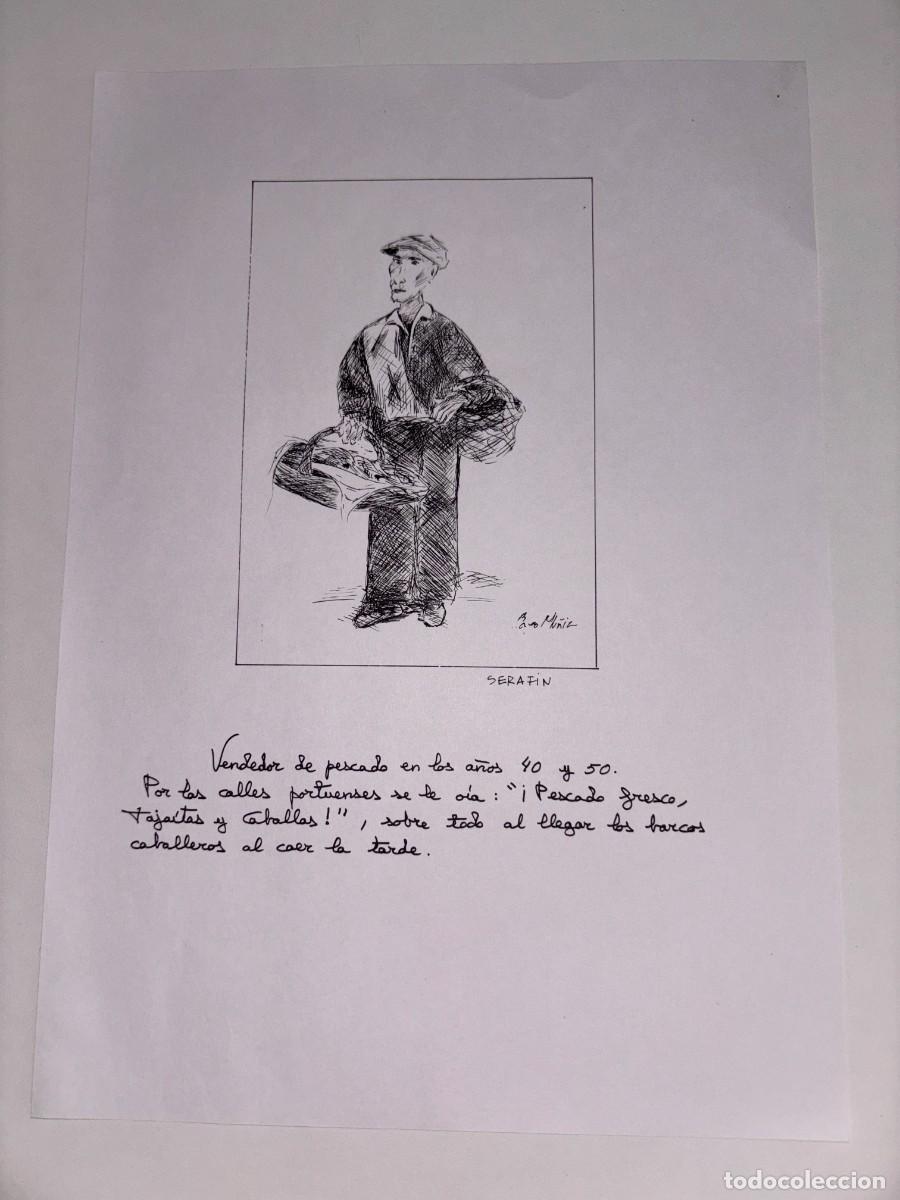 Muñiz
SERAFIN
Vendedor de pescado en los años 40 y 50.
Por las calles portuenses se le oía: "¡Pescado fresco,
tajaitas y caballas!", sobre todo al llegar los barcos
caballeros al caer la tarde.
todocoleccion